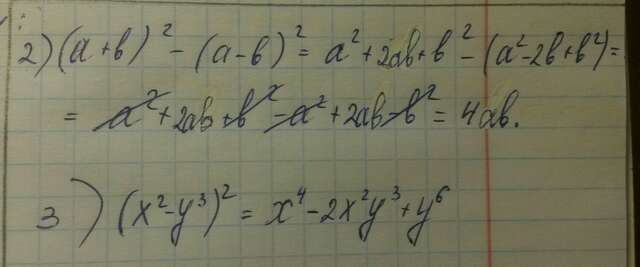 2) (a+b)² - (a-b)² = a² + 2ab + b² - (a² - 2b + b²) =
= a² + 2ab + b² - a² + 2ab - b² = 4ab.
3) (x² - y³)² = x⁴ - 2x²y³ + y⁶